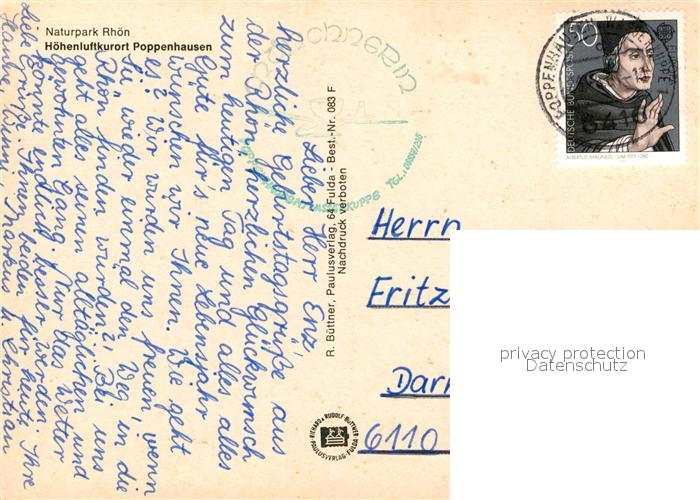 Naturpark Rhön
Höhenluftkurort Poppenhausen
Lieber Herr Enz,
herzliche Geburtstagsgrüße aus
der Rhön herzlichen Glückwunsch
zum heutigen Tag und alles alles
Gute für's neue Lebensjahr
wünschen wir Ihnen. Wie geht
es? Wir würden uns freuen, wenn
Sie wieder einmal den Weg in die
Rhön finden würden. Bei uns
geht alles seinen alltäglichen und
gewohnten Gang. Nur das Wetter
könnte endlich besser werden.
Liebe Grüße Ihnen beiden für heute Ihre
Markus u. Christian
R. Büttner, Paulusverlag, 64 Fulda - Best.-Nr. 083 F
Nachdruck verboten
TEL.
RICHARD & RUDOLF BÜTTNER
PAULUSVERLAG · FULDA
50
EUROPA
DEUTSCHE BUNDESPOST
ALBERTUS MAGNUS · UM 1193-1280
POPPENHAUSEN
Herrn
Fritz
Darm
6110
privacy protection
Datenschutz